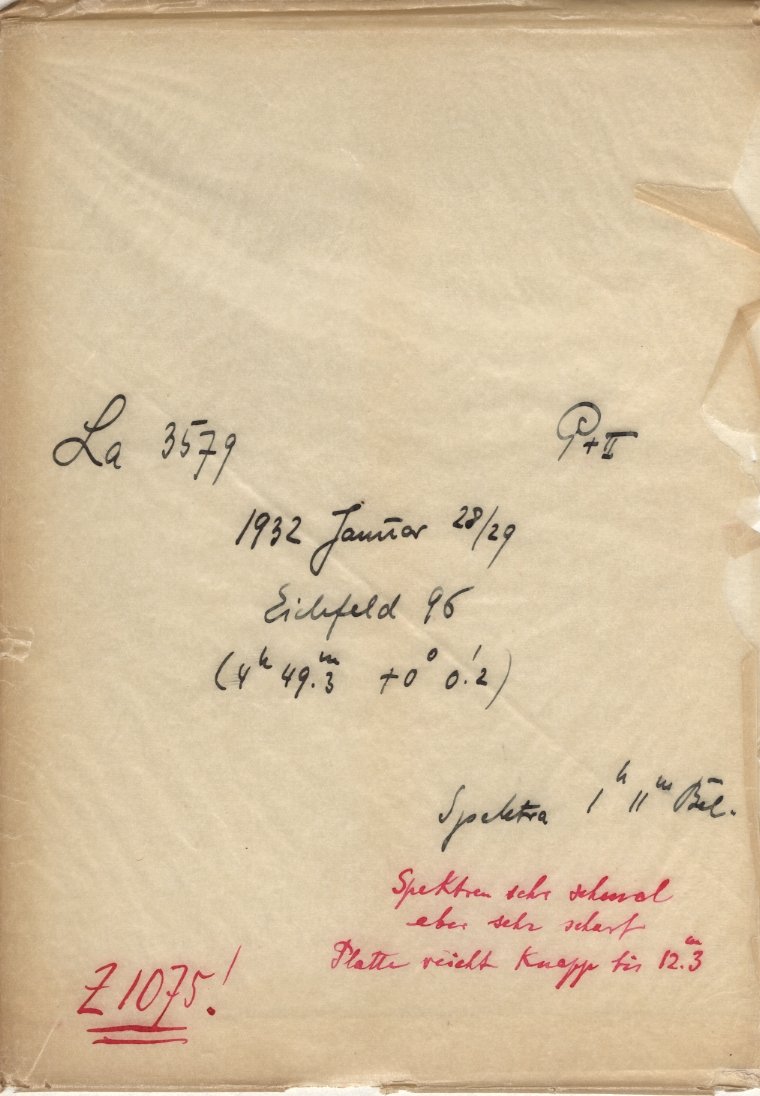 La 3579 P+II
1932 Januar 28/29
Eichfeld 96
(4ʰ 49.ᵐ3 +0° 0.′2)
Spektra 1ʰ 11ᵐ Bel.
Spektren sehr schmal
aber sehr scharf
Platte reicht knapp bis 12.ᵐ3
Z 1075!